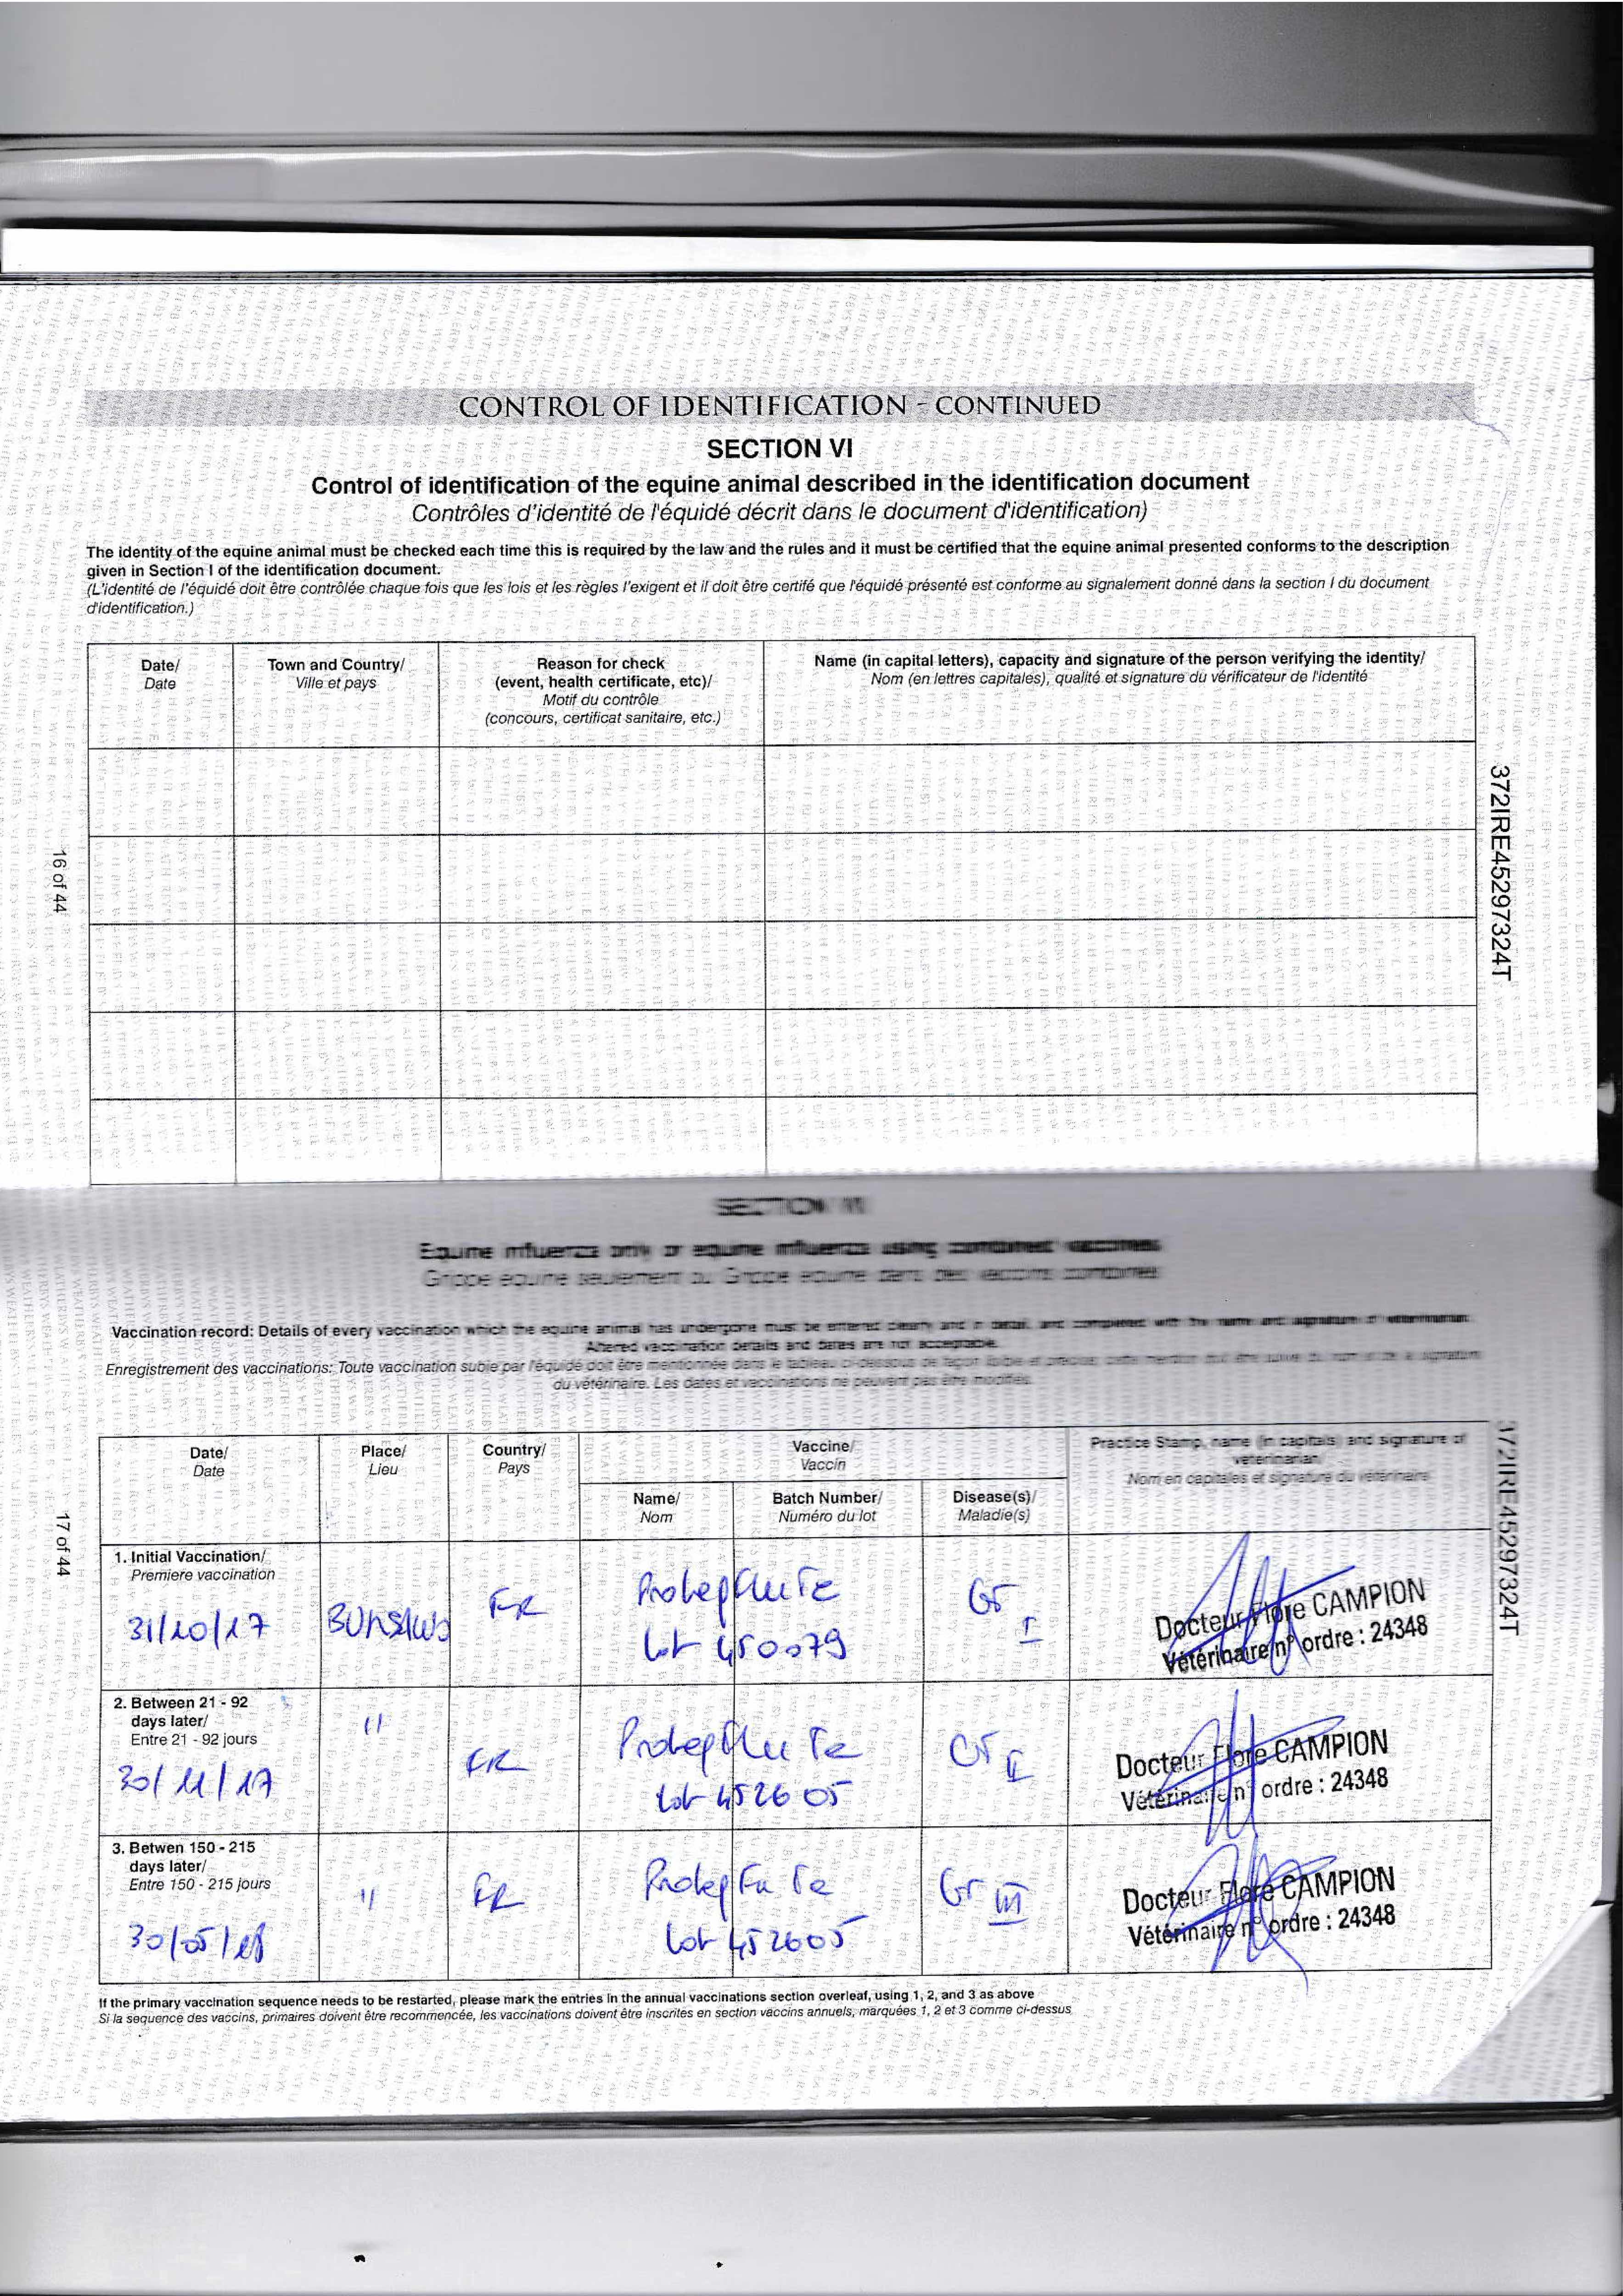 CONTROL OF IDENTIFICATION - CONTINUED
SECTION VI
Control of identification of the equine animal described in the identification document
Contrôles d'identité de l'équidé décrit dans le document d'identification)
The identity of the equine animal must be checked each time this is required by the law and the rules and it must be certified that the equine animal presented conforms to the description
given in Section I of the identification document.
(L'identité de l'équidé doit être contrôlée chaque fois que les lois et les règles l'exigent et il doit être certifé que l'équidé présenté est conforme au signalement donné dans la section I du document
d'identification.)
Date/
Date
Town and Country/
Ville et pays
Reason for check
(event, health certificate, etc)/
Motif du contrôle
(concours, certificat sanitaire, etc.)
Name (in capital letters), capacity and signature of the person verifying the identity/
Nom (en lettres capitales), qualité et signature du vérificateur de l'identité
372IRE45297324T
16 of 44
SECTION
Equine influenza only or equine influenza using combined vaccines
Grippe equine seulement ou Grippe equine dans des vaccins combines
Vaccination record: Details of every vaccination which the equine animal has undergone must be entered clearly and in detail, and completed with the name and signature of veterinarian.
Altered vaccination details and dates are not acceptable.
Enregistrement des vaccinations: Toute vaccination subie par l'équidé doit être mentionnée dans le tableau ci-dessous de façon lisible et précise, cette mention doit être suivie du nom et de la signature
du vétérinaire. Les dates et vaccinations ne peuvent pas être modifiés.
Date/
Date
Place/
Lieu
Country/
Pays
Vaccine/
Vaccin
Name/
Nom
Batch Number/
Numéro du lot
Disease(s)/
Maladie(s)
Practice Stamp, name (in capitals) and signature of
veterinarian/
Nom en capitales et signature du vétérinaire
372IRE45297324T
17 of 44
1. Initial Vaccination/
Premiere vaccination
31/10/17
FR
Lot 450079
I
Docteur Flore CAMPION
Vétérinaire n° ordre : 24348
2. Between 21 - 92
days later/
Entre 21 - 92 jours
30/11/17
"
FR
Lot 452605
II
Docteur Flore CAMPION
Vétérinaire n° ordre : 24348
3. Betwen 150 - 215
days later/
Entre 150 - 215 jours
30/05/18
"
FR
Lot 452605
Gr III
Docteur Flore CAMPION
Vétérinaire n° ordre : 24348
If the primary vaccination sequence needs to be restarted, please mark the entries in the annual vaccinations section overleaf, using 1, 2, and 3 as above
Si la sequence des vaccins, primaires doivent être recommencée, les vaccinations doivent être inscrites en section vaccins annuels, marquées 1, 2 et 3 comme ci-dessus